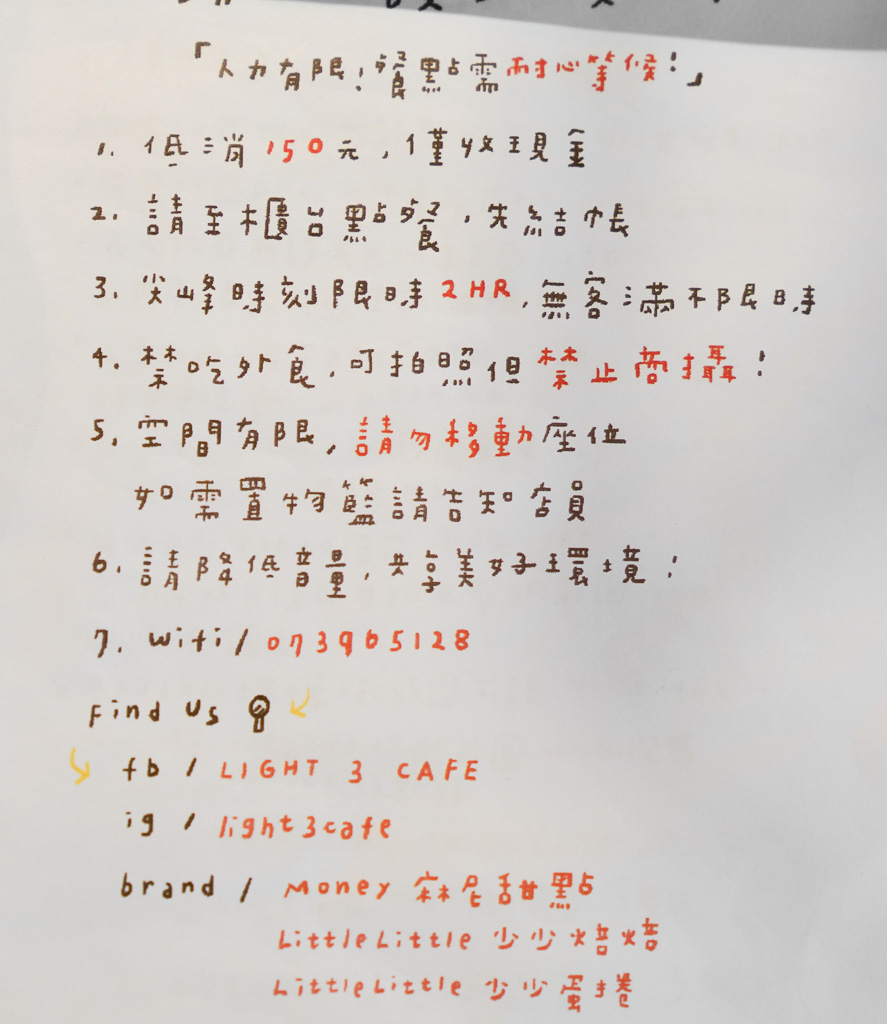 「人力有限！餐點需耐心等候！」
1. 低消150元，僅收現金
2. 請至櫃台點餐，先結帳
3. 尖峰時刻限時2HR，無客滿不限時
4. 禁吃外食，可拍照但禁止商攝！
5. 空間有限，請勿移動座位
如需置物籃請告知店員
6. 請降低音量，共享美好環境！
7. wifi/073965128
Find us
fb / LIGHT 3 CAFE
ig / light3cafe
brand / Money 寐尼甜點
LittleLittle 少少烘焙
LittleLittle 少少蛋捲